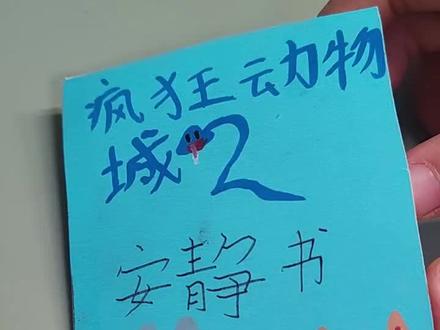 疯狂动物
城2
安静书